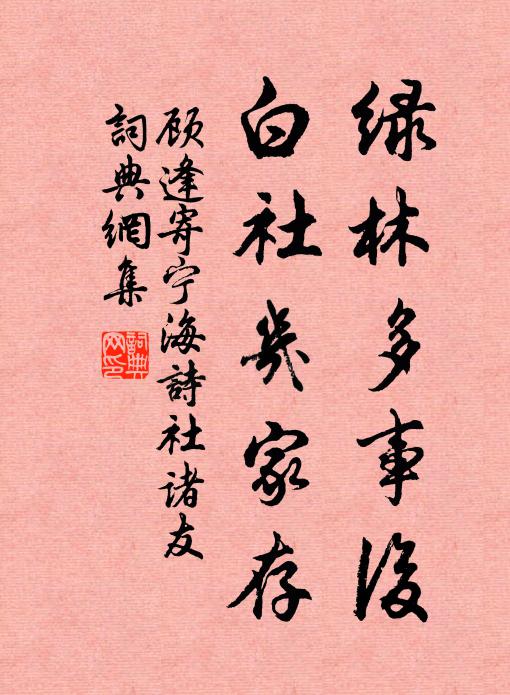 绿林多事後
白社幾家存
顾逢寄宁海詩社诸友
詞典網集
詞典网印